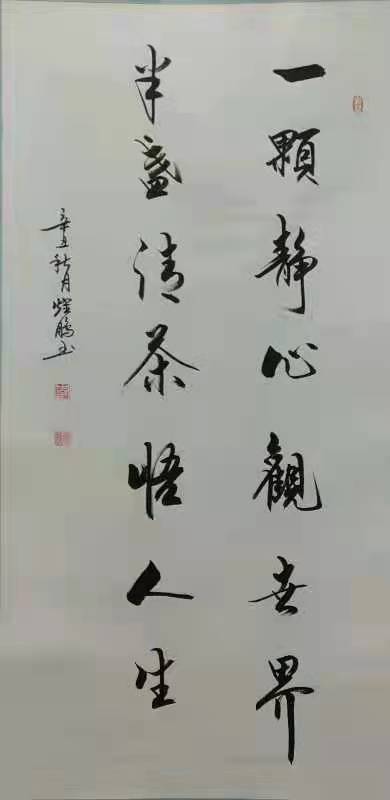 一顆靜心觀世界
半盞清茶悟人生
辛丑秋月耀鵬书